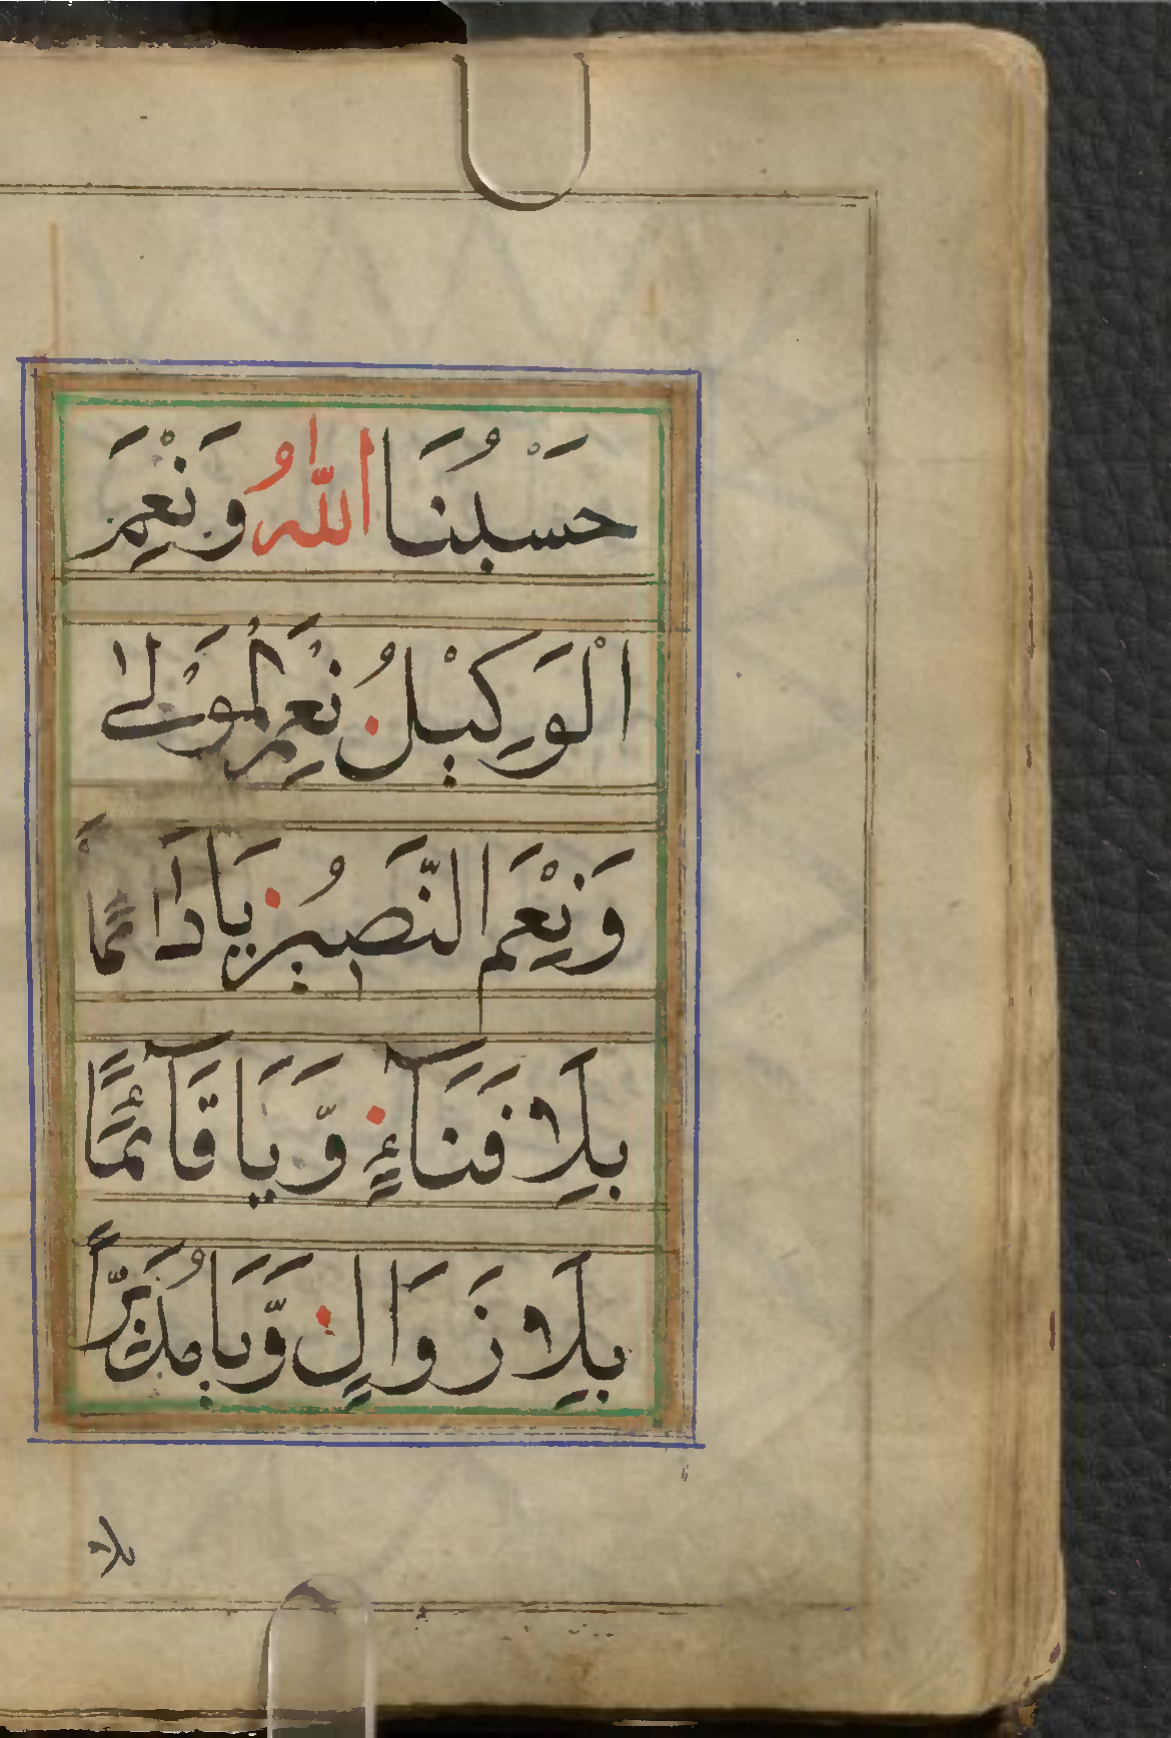 حَسْبُنَا اللّٰهُ وَنَعْمَ
الْوَكِيْلُ نَعْمَ الْمَوْلٰى
وَنِعْمَ النَّصِيْرُ يَا دَائِمًا
بِلَا فَنَآءٍ وَّيَا قَآئِمًا
بِلَا زَوَالٍ وَّيَا مُدَبِّرًا
بلا